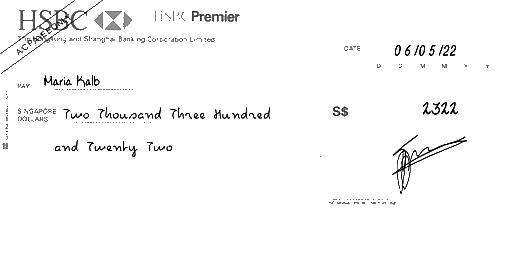 HSBC HSBC Premier
The Hongkong and Shanghai Banking Corporation Limited
AC PAYEE ONLY
DATE 06/05/22
D D M M Y Y
PAY Maria Kalb
SINGAPORE DOLLARS Two Thousand Three Hundred
and Twenty Two
S$ 2322